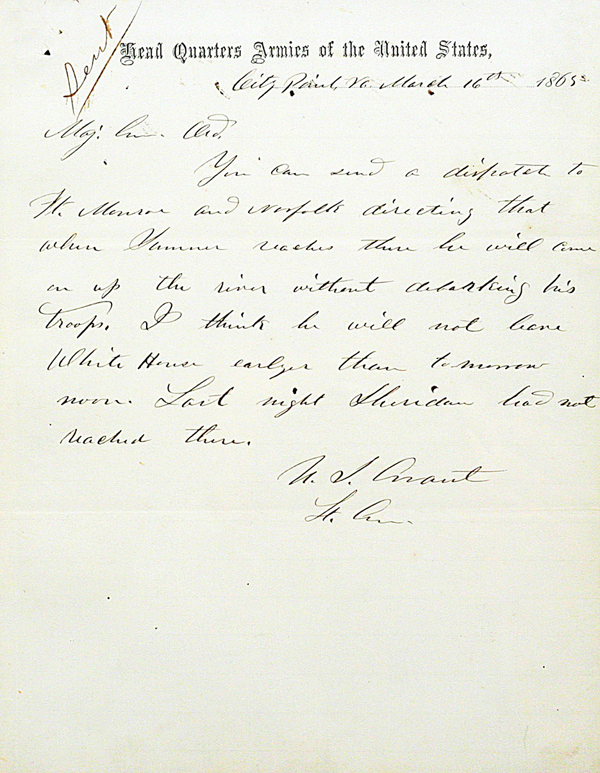 Sent
Head Quarters Armies of the United States,
City Point, Va. March 16th 1865
Maj. Gen. Ord.
You can send a dispatch to
Ft. Monroe and Norfolk directing that
when Sumner reaches there he will come
on up the river without debarking his
troops. I think he will not leave
White House earlyer than tomorrow
noon. Last night Sheridan had not
reached there.
U. S. Grant
Lt. Gen.